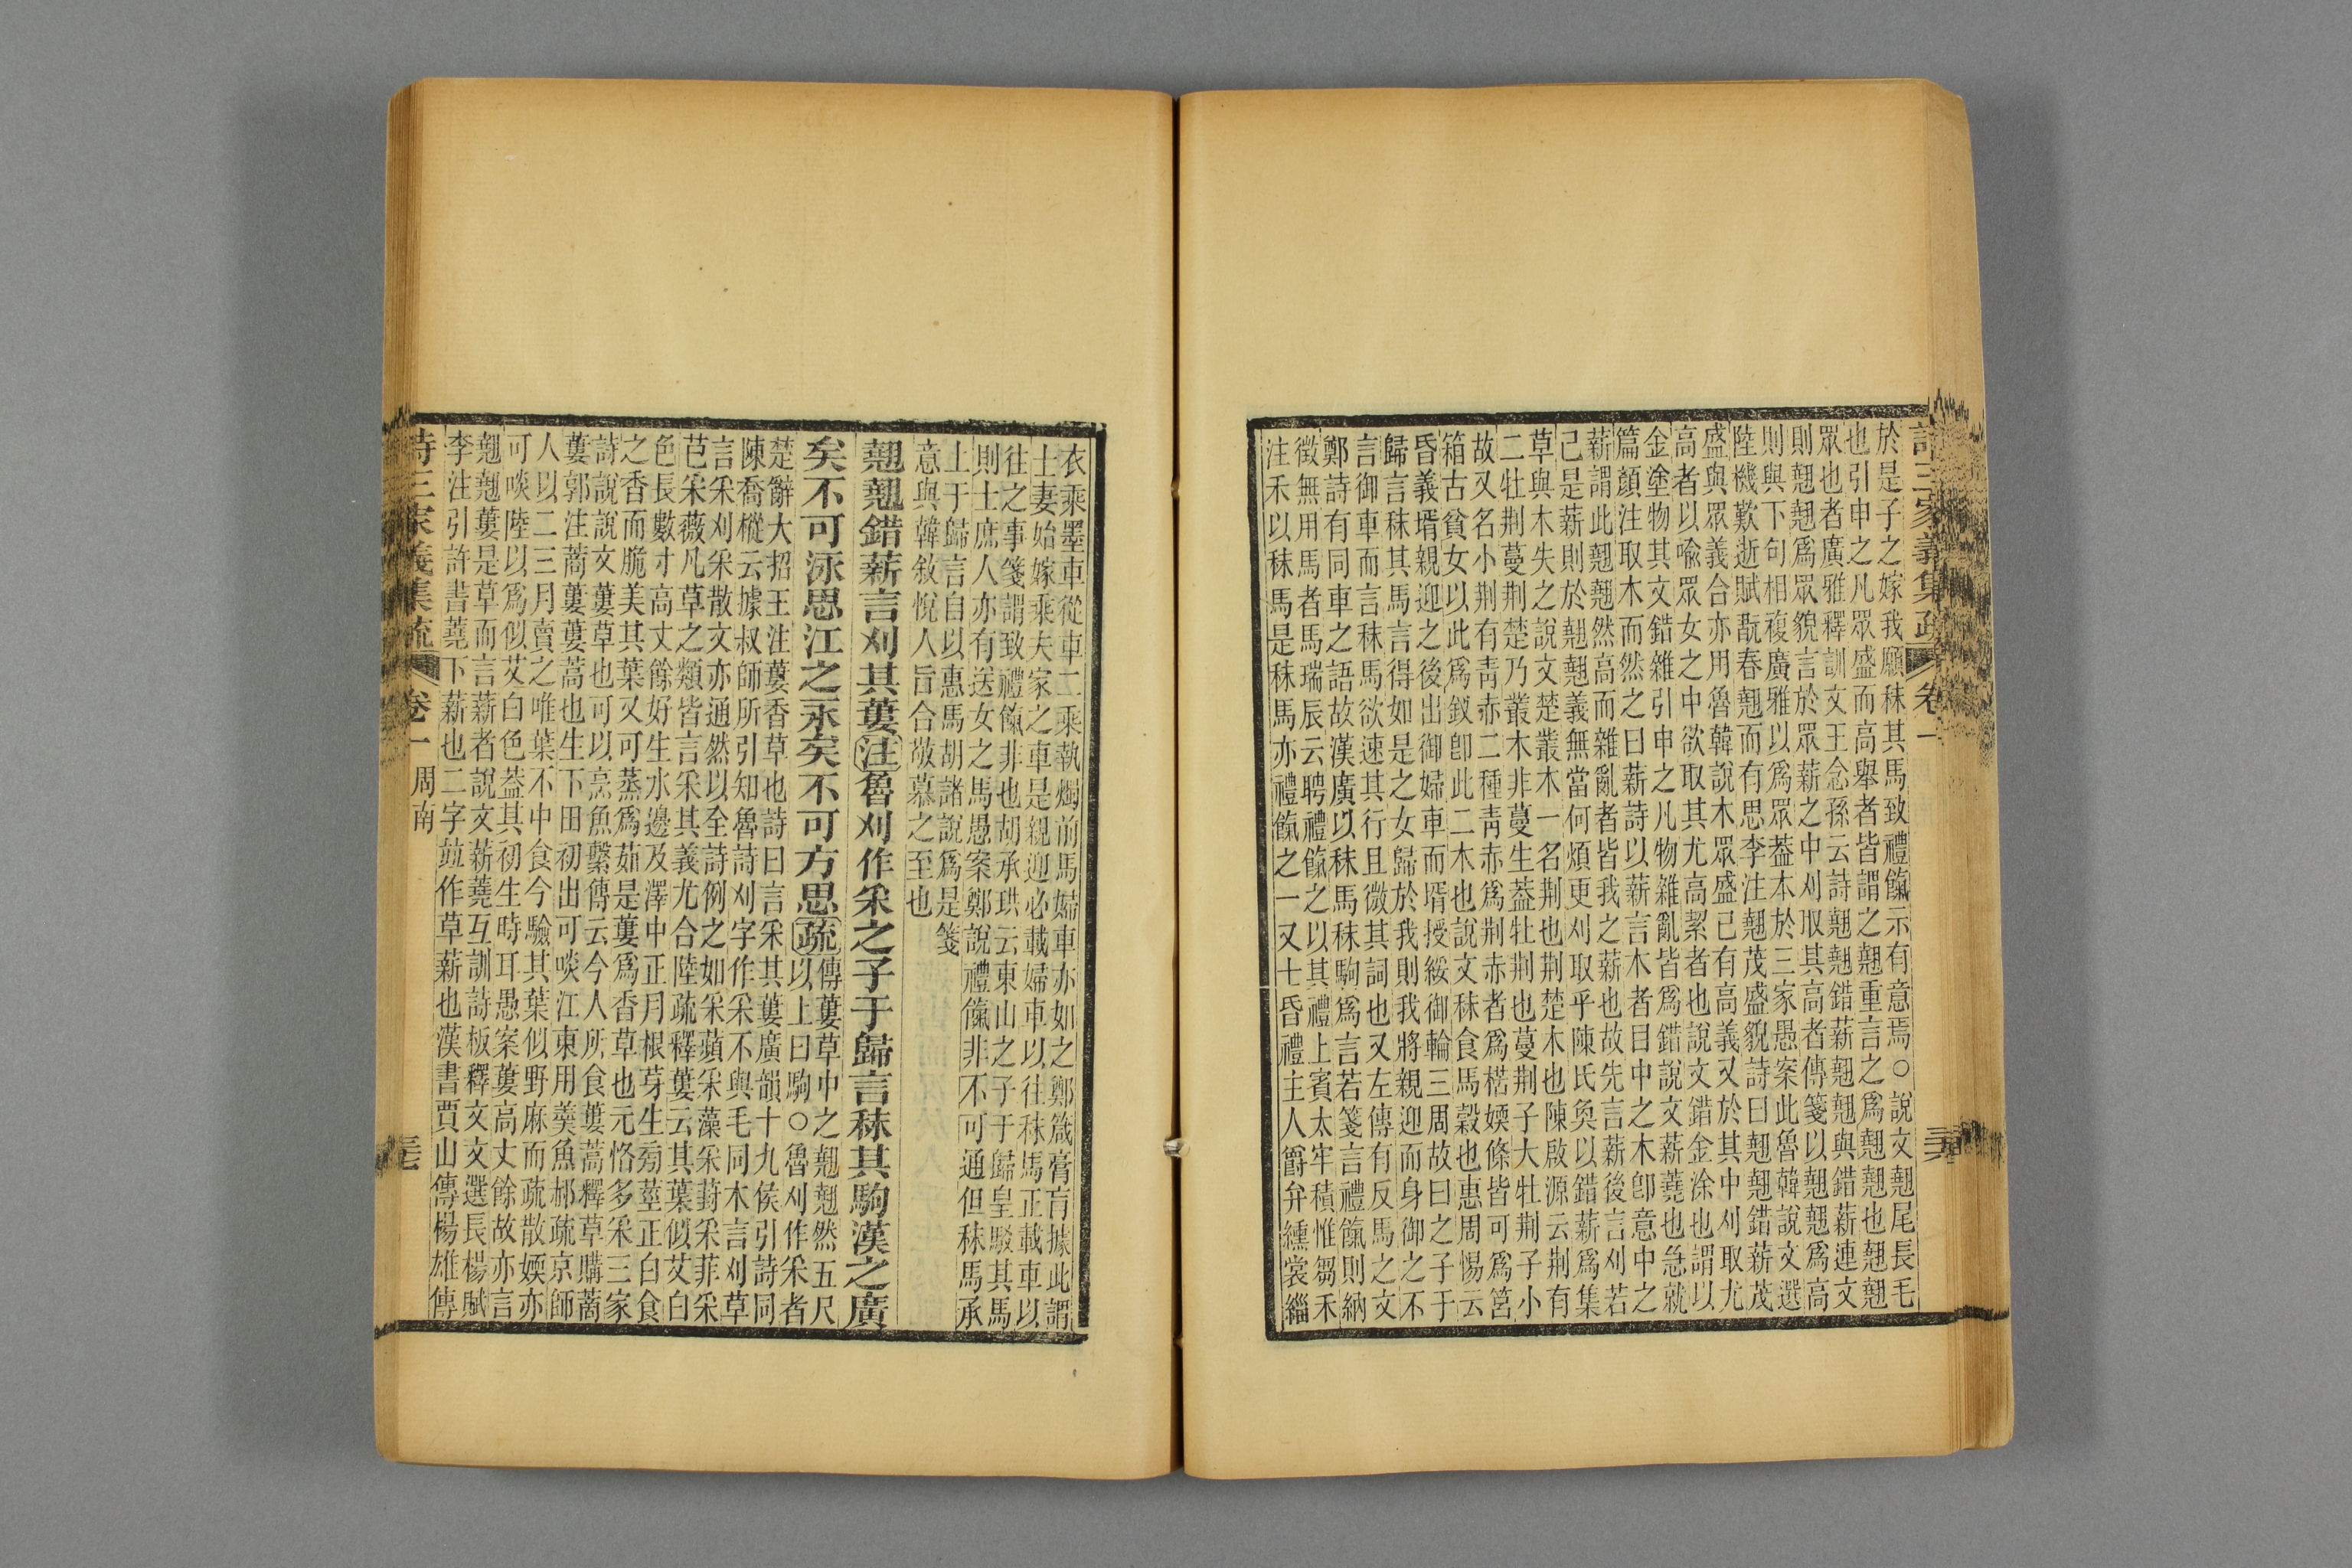 詩三家義集疏 卷一
於是子之嫁我願秣其馬致禮餼示有意焉○說文翹尾長毛
也引申之凡眾盛而高舉者皆謂之翹重言之爲翹翹也翹翹
眾也者廣雅釋訓文王念孫云詩翹翹錯薪翹翹與錯薪連文
則翹翹爲眾貌言於眾薪之中刈取其高者傳箋以翹翹爲高
則與下句相複廣雅以爲眾葢本於三家愚案此魯韓說文選
陸機歎逝賦翫春翹而有思李注翹茂盛貌詩曰翹翹錯薪茂
盛與眾義合亦用魯韓說木眾盛已有高義又於其中刈取尤
高者以喻眾女之中欲取其尤高絜者也說文錯金涂也謂以
金塗物其文錯雜引申之凡物雜亂皆爲錯說文薪蕘也急就
篇顏注取木而然之曰薪詩以薪言木者目中之木卽意中之
薪謂此翹翹然高而雜亂者皆我之薪也故先言薪後言刈若
己是薪則於翹翹義無當何煩更刈取乎陳氏奐以錯薪爲集
草與木失之說文楚叢木一名荆也荆楚木也陳啟源云荆有
二牡荆蔓荆楚乃叢木非蔓生葢牡荆也蔓荆子大牡荆子小
故又名小荆有青赤二種青赤爲荆赤者爲楛㛄條皆可爲筥
箱古貧女以此爲釵卽此二木也說文秣食馬穀也惠周惕云
昏義壻親迎之後出御婦車而壻授綏御輪三周故曰之子于
歸言秣其馬言得如是之女歸於我則我將親迎而身御之不
言御車而言秣馬欲速其行且微其詞也又左傳有反馬之文
鄭詩有同車之語故漢廣以秣馬秣駒爲言若箋言禮餼則納
徵無用馬者馬瑞辰云聘禮餼之以其禮上賓太牢積惟芻禾
注禾以秣馬是秣馬亦禮餼之一又士昏禮主人爵弁纁裳緇
衣乘墨車從車二乘執燭前馬婦車亦如之鄭箴膏肓據此謂
士妻始嫁乘夫家之車是親迎必載婦車以往秣馬正載車以
往之事箋謂致禮餼非也胡承珙云東山之子于歸皇駁其馬
則士庶人亦有送女之馬愚案鄭說禮餼非不可通但秣馬承
上于歸言自以惠馬胡諸說爲是箋
意與韓敘悅人旨合敬慕之至也
翹翹錯薪言刈其蔞注魯刈作采之子于歸言秣其駒漢之廣
矣不可泳思江之永矣不可方思疏傳蔞草中之翹翹然五尺
以上曰駒○魯刈作采者
楚辭大招王注蔞香草也詩曰言采其蔞廣韻十九侯引詩同
陳喬樅云據叔師所引知魯詩刈字作采不與毛同木言刈草
言采刈采散文亦通然以全詩例之如采蘋采藻采葑采菲采
芑采薇凡草之類皆言采其義尤合陸疏釋蔞云其葉似艾白
色長數寸高丈餘好生水邊及澤中正月根芽生旁莖正白食
之香而脆美其葉又可蒸爲茹是蔞爲香草也元恪多采三家
詩說說文蔞草也可以烹魚繫傳云今人所食蔞蒿釋草購蔏
蔞郭注蔏蔞蔞蒿也生下田初出可啖江東用羹魚郝疏京師
人以二三月賣之唯葉不中食今驗其葉似野麻而疏散㛄亦
可啖陸以爲似艾白色葢其初生時耳愚案蔞高丈餘故亦言
翹翹蔞是草而言薪者說文薪蕘互訓詩板釋文文選長楊賦
李注引許書蕘下薪也二字竝作草薪也漢書賈山傳楊雄傳
詩三家義集疏 卷一 周南